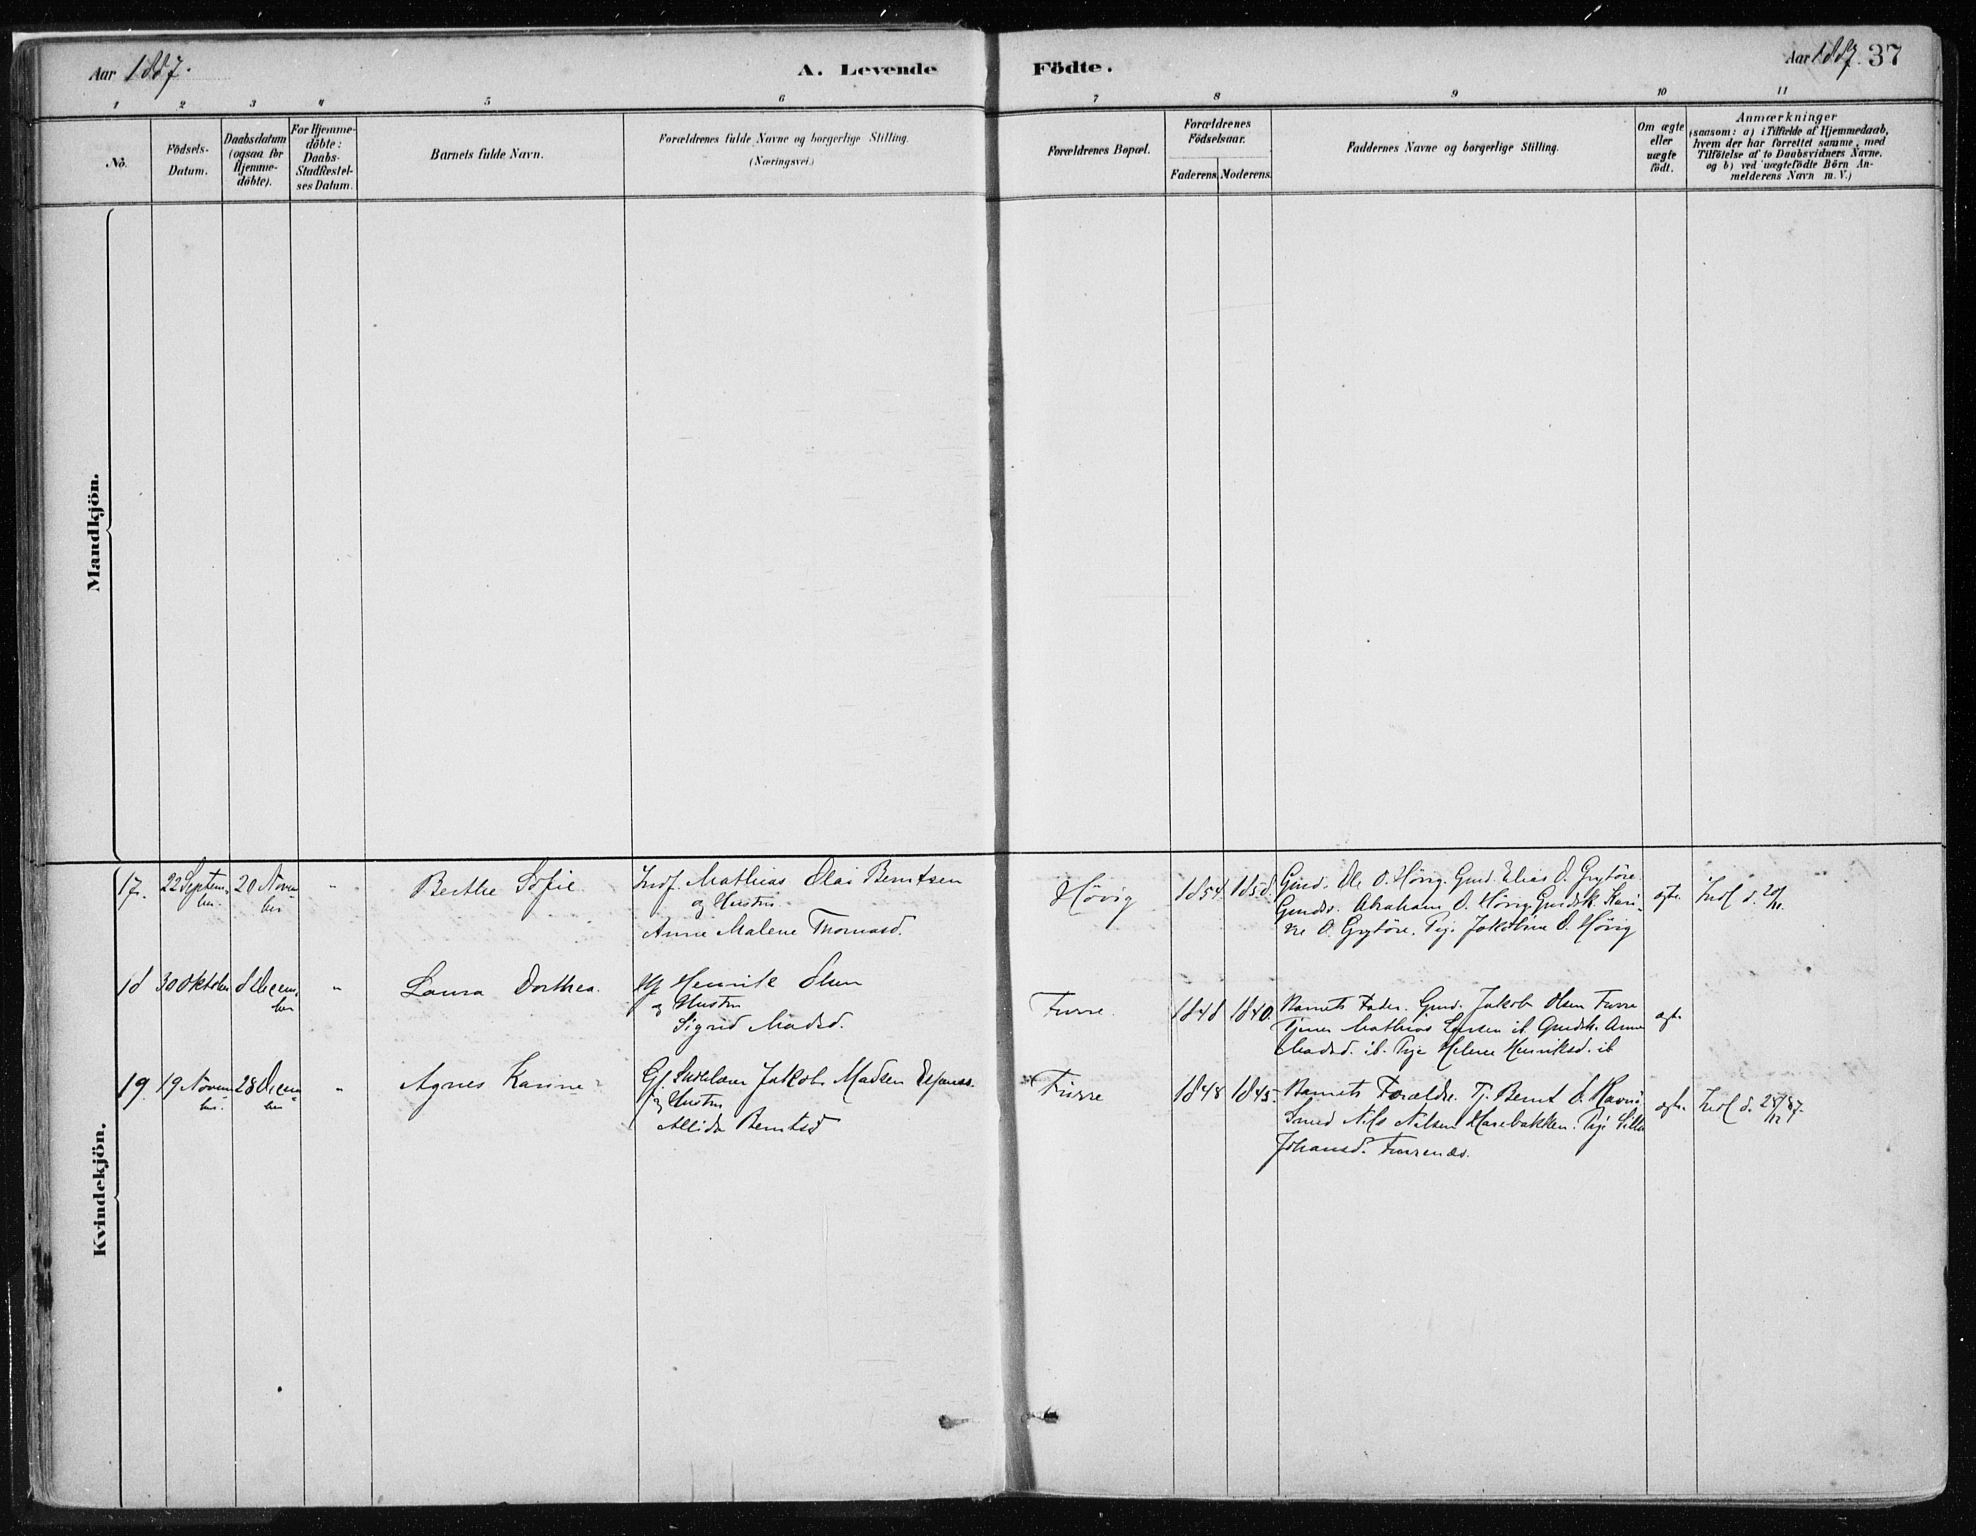 Aar 1887.
A. Levende
Födte.
Aar 1887. 37
1 2 3 4 5 6 7 8 9 10 11
No.
Födsels-
Datum.
Daabsdatum
(ogsaa for
Hjemme-
döbte).
For Hjemme-
döbte:
Daabs-
Stadfæstel-
ses Datum.
Barnets fulde Navn.
Forældrenes fulde Navne og borgerlige Stilling.
(Næringsvei.)
Forældrenes Bopæl.
Forældrenes
Födselsaar.
Faderens. Moderens.
Faddernes Navne og borgerlige Stilling.
Om ægte
eller
uægte
födt.
Anmærkninger
(saasom: a) i Tilfælde af Hjemmedaab,
hvem der har forrettet samme, med
Tilföielse af to Daabsvidners Navne.
og b) ved uægtefödte Börn An-
melderens Navn m. V.)
Mandkjön.
Kvindekjön.
17.
22 Septem-
ber.
20 Novem-
ber
"
Berthe Sofie
Indf. Mathias Olai Berntsen
og Hustru
Anne Malene Thomasd.
Høvig
1854. 1858.
Gmd. Ole O. Høvig. Gmd. Elias O. Grytøre.
Gmds. Abraham O. Høvig. Gmdsk. Kari-
ne O. Grytøre. Pige Jakobine O. Høvig
ægte.
Indl d. 20/11.
18
30 Oktober
8 Decem-
ber
"
Laura Dorthea.
Henrik Olsen
og Hustru
Sigrid Madsd.
Furre.
1848 1840.
Barnets Fader. Gmd. Jakob Olsen Furre
Tjener Mathias Larsen ib. Gmdsk. Anne
Madsd. ib. Pige Helene Henriksd. ib
ægte
19.
19 Novem-
ber.
28 Decem-
ber
"
Agnes Karine
Jakob Madsen
og Hustru
Berntsd
Furre
1848 1845.
Barnets Forældre. Tj. Bernt
Smed Nils Nilsen Harebakken. Pige
Johansd. Furrenæs.
ægte.
Indl d. 28/12 87.